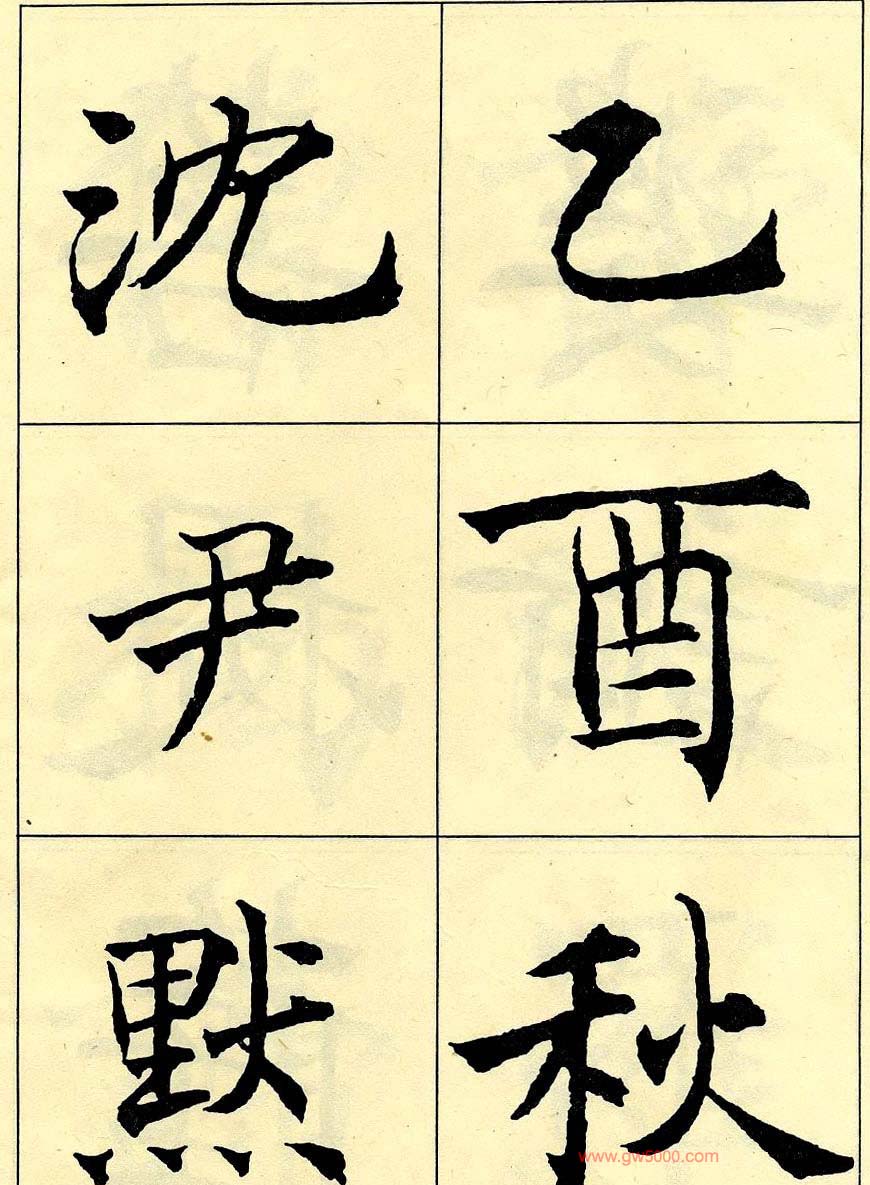 乙酉秋
沈尹默
www.gw5000.com